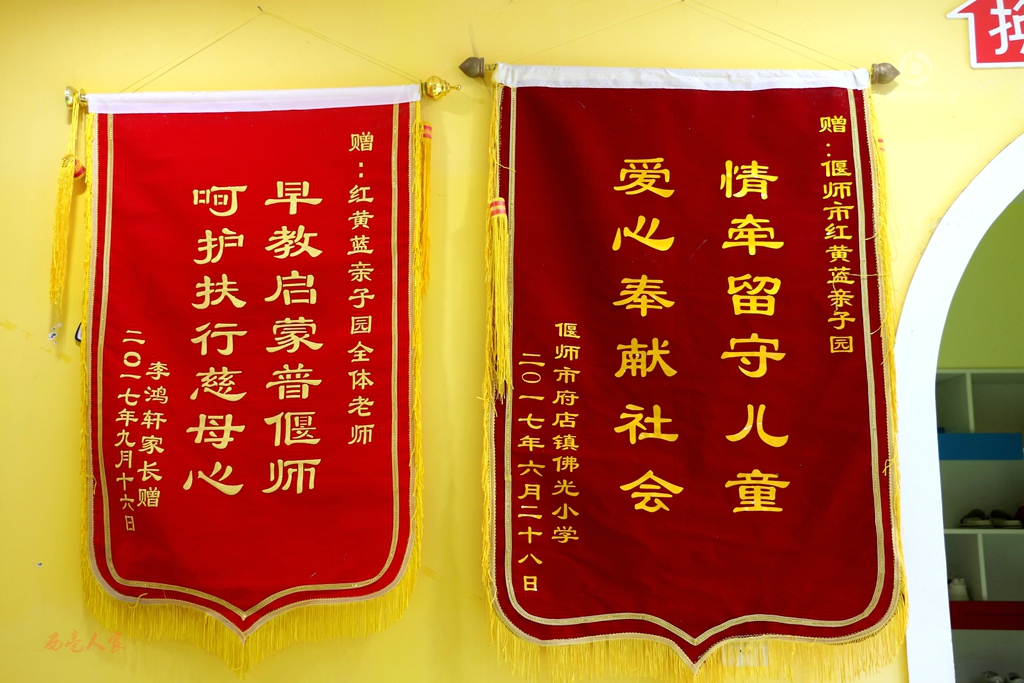 赠：红黄蓝亲子园全体老师
早教启蒙普偃师
呵护扶行慈母心
李鸿轩家长赠
二〇一七年九月十六日
赠：偃师市红黄蓝亲子园
情牵留守儿童
爱心奉献社会
偃师市府店镇佛光小学
二〇一七年六月二十八日
西亳人家